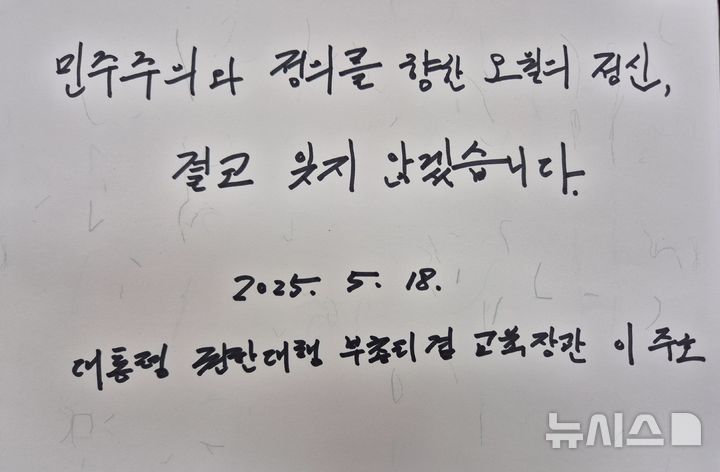 민주주의와 정의를 향한 오월의 정신,
결코 잊지 않겠습니다.
2025. 5. 18.
대통령 권한대행 부총리겸 교육장관 이주호
뉴시스